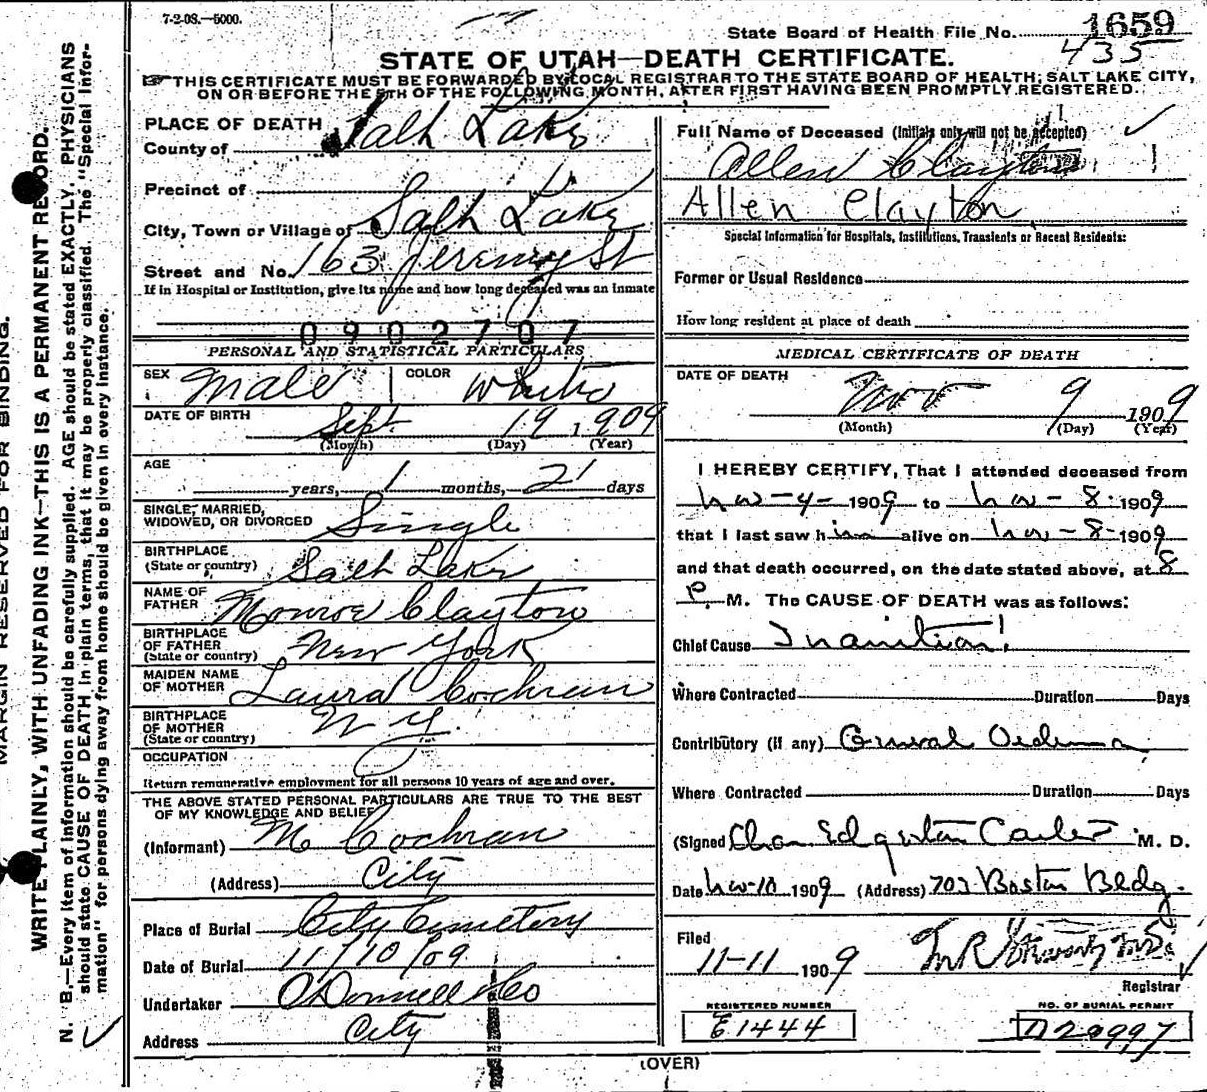 7-2-08.—5000.
State Board of Health File No. 1659
435
STATE OF UTAH—DEATH CERTIFICATE.
THIS CERTIFICATE MUST BE FORWARDED BY LOCAL REGISTRAR TO THE STATE BOARD OF HEALTH, SALT LAKE CITY,
ON OR BEFORE THE 5TH OF THE FOLLOWING MONTH, AFTER FIRST HAVING BEEN PROMPTLY REGISTERED.
MARGIN RESERVED FOR BINDING.
WRITE PLAINLY, WITH UNFADING INK—THIS IS A PERMANENT RECORD.
N. B.—Every item of information should be carefully supplied. AGE should be stated EXACTLY. PHYSICIANS
should state CAUSE OF DEATH in plain terms, that it may be properly classified. The "Special Infor-
mation" for persons dying away from home should be given in every instance.
PLACE OF DEATH
County of Salt Lake
Precinct of
City, Town or Village of Salt Lake
Street and No. 163 Jeremy St
If in Hospital or Institution, give its name and how long deceased was an inmate
0902707
PERSONAL AND STATISTICAL PARTICULARS
SEX Male COLOR White
DATE OF BIRTH Sept. 19 1909
(Month) (Day) (Year)
AGE years, 1 months, 21 days
SINGLE, MARRIED,
WIDOWED, OR DIVORCED Single
BIRTHPLACE
(State or country) Salt Lake
NAME OF
FATHER Monroe Clayton
BIRTHPLACE
OF FATHER
(State or country) New York
MAIDEN NAME
OF MOTHER Laura Cochran
BIRTHPLACE
OF MOTHER
(State or country) N Y
OCCUPATION
Return remunerative employment for all persons 10 years of age and over.
THE ABOVE STATED PERSONAL PARTICULARS ARE TRUE TO THE BEST
OF MY KNOWLEDGE AND BELIEF
(Informant) M Cochran
(Address) City
Place of Burial City Cemetery
Date of Burial 11/10/09
Undertaker O'Donnell & Co
Address City
Full Name of Deceased (Initials only will not be accepted)
Allen Clayton
Allen Clayton
Special Information for Hospitals, Institutions, Transients or Recent Residents:
Former or Usual Residence
How long resident at place of death
MEDICAL CERTIFICATE OF DEATH
DATE OF DEATH
Nov 9 1909
(Month) (Day) (Year)
I HEREBY CERTIFY, That I attended deceased from
Nov-4- 1909 to Nov-8- 1909
that I last saw him alive on Nov-8- 1909
and that death occurred, on the date stated above, at 8
P. M. The CAUSE OF DEATH was as follows:
Chief Cause Inanition
Where Contracted Duration Days
Contributory (if any) General Oedema
Where Contracted Duration Days
(Signed Chas Edgerton Carter M. D.
Date Nov-10 1909 (Address) 703 Boston Bldg.
Filed
11-11 1909
Registrar
REGISTERED NUMBER
E1444
NO. OF BURIAL PERMIT
D20997
(OVER)